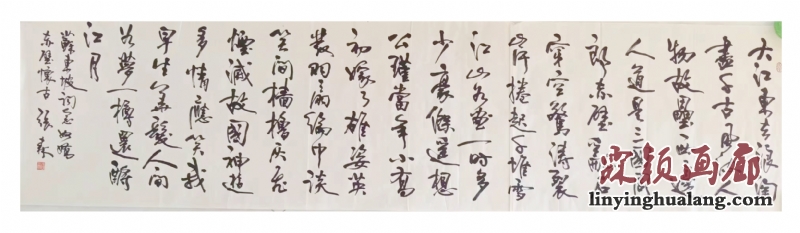 大江東去浪淘
盡千古風流人
物故壘西邊
人道是三國周
郎赤壁亂石
穿空驚濤裂
岸捲起千堆雪
江山如畫一時多
少豪傑遥想
公瑾當年小喬
初嫁了雄姿英
發羽扇綸巾談
笑间檣櫓灰飛
煙滅故國神遊
多情應笑我
早生華髮人间
如夢一樽還酹
江月
蘇東坡詞念奴嬌
赤壁懷古 張森
颖画廊
linyinghualang.com